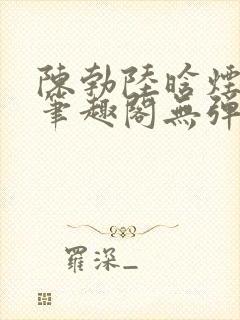 陳勃陸晗煙
筆趣閣無彈
羅深_